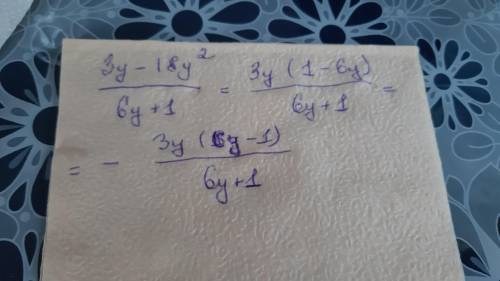 (3y - 18y²)/(6y + 1) = 3y (1 - 6y)/(6y + 1) =
= - 3y (6y - 1)/(6y + 1)